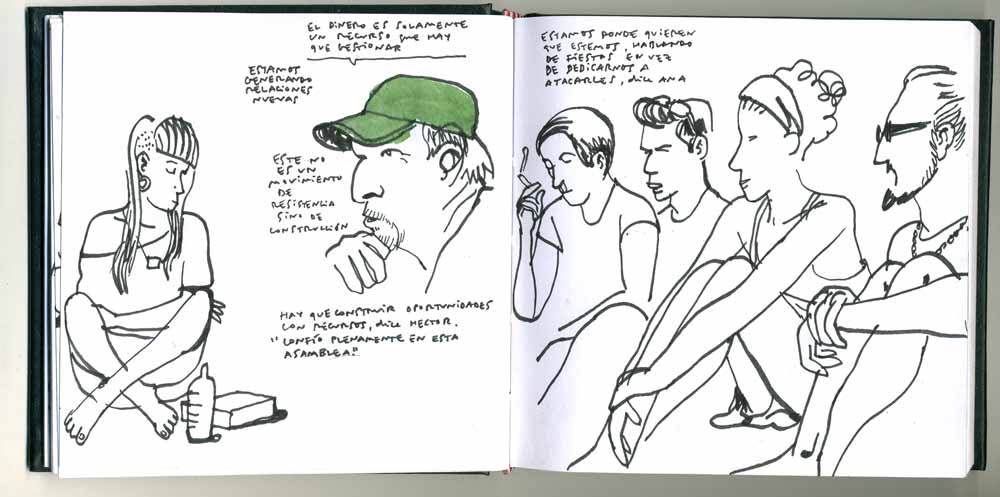 EL DINERO ES SOLAMENTE
UN RECURSO QUE HAY
QUE GESTIONAR
ESTAMOS
GENERANDO
RELACIONES
NUEVAS
ESTE NO
ES UN
MOVIMIENTO
DE
RESISTENCIA
SINO DE
CONSTRUCCIÓN
HAY QUE CONSTRUIR OPORTUNIDADES
CON RECURSOS, dice HECTOR.
"CONFÍO PLENAMENTE EN ESTA
ASAMBLEA".
ESTAMOS DONDE QUIEREN
QUE ESTEMOS, HABLANDO
DE FIESTOS EN VEZ
DE DEDICARNOS A
ATACARLES, dice ANA